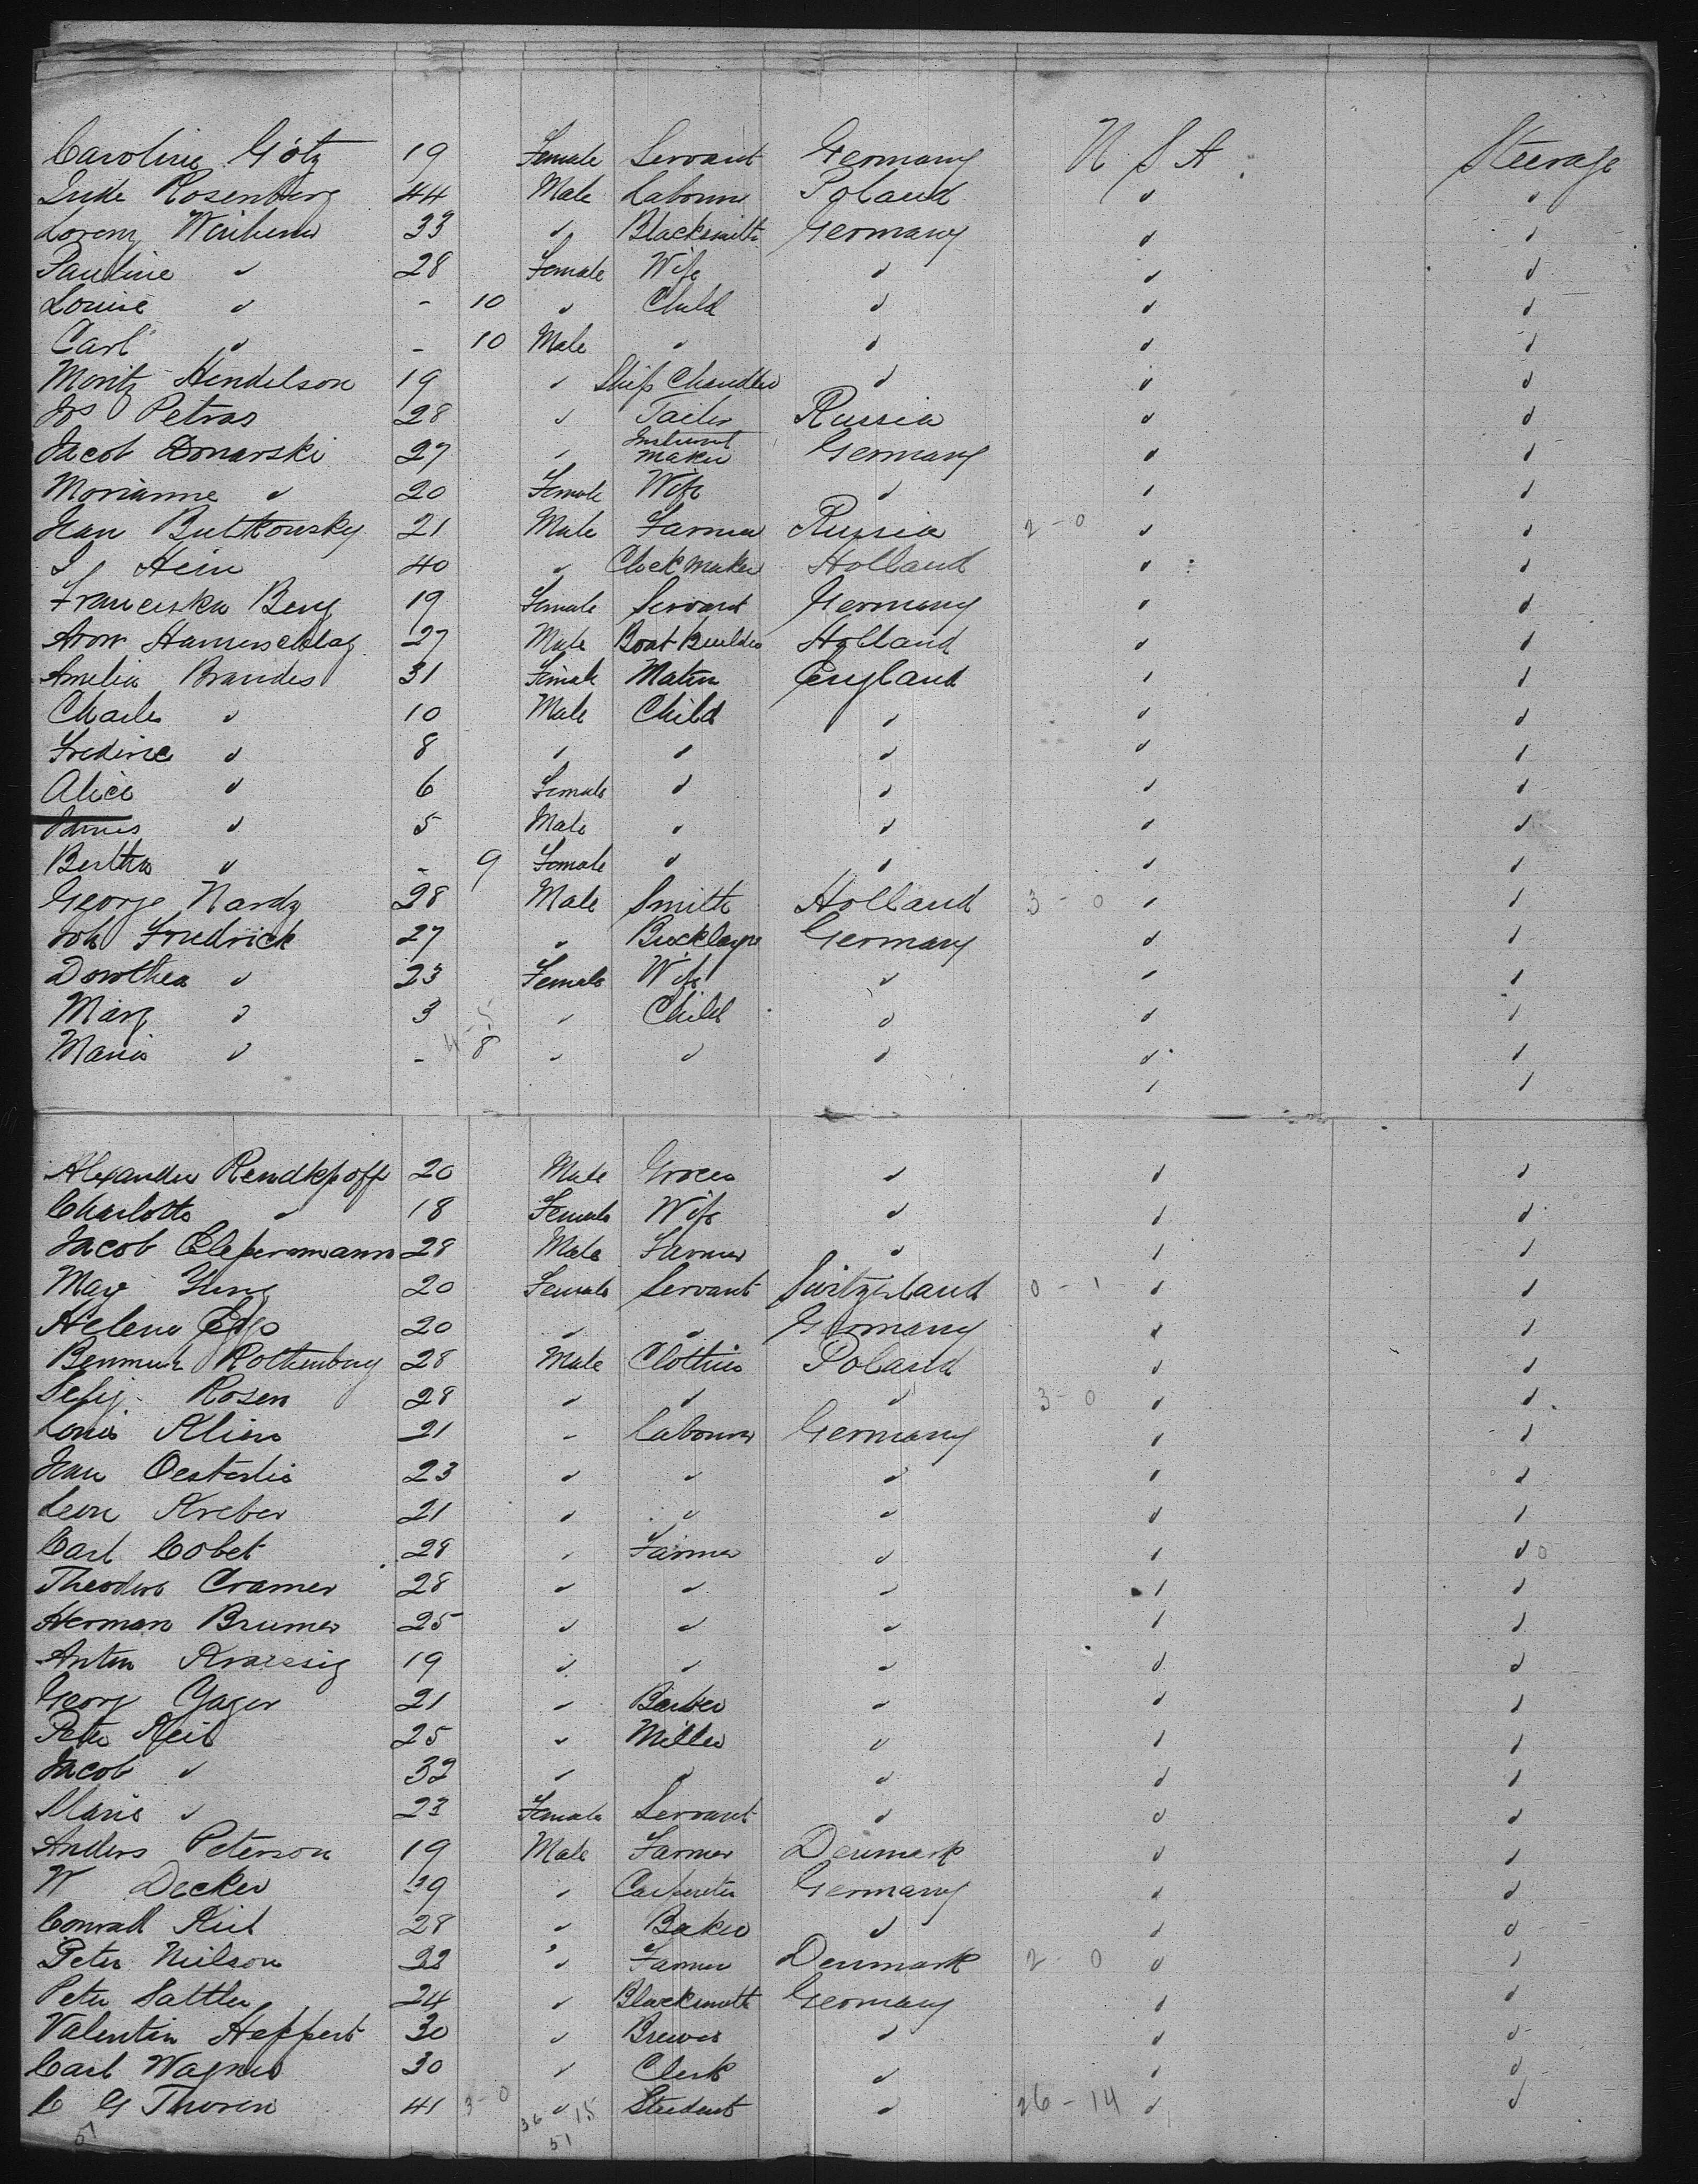 Caroline Götz 19 Female Servant Germany U S A. Steerage
Jude Rosenberg 44 Male Labourer Poland " "
Lorenz 33 " Blacksmith Germany " "
Pauline " 28 Female Wife " " "
Louise " - 10 " Child " " "
Carl " - 10 Male " " " "
Moritz Hendelson 19 " Ship Chandler " " "
Jos Petras 28 " Tailor Russia " "
Jacob Donarski 27 " Instrumt maker Germany " "
Morianne " 20 Female Wife " " "
Jean Butkowsky 21 Male Farmer Russia 2-0 " "
Hein 40 " Clockmaker Holland " "
Franciska Berg 19 Female Servant Germany " "
Aron Hamerschlag 27 Male Boat Builder Holland " "
Amelia Brandes 31 Female Matron England " "
Charles " 10 Male Child " " "
Frederic " 8 " " " " "
Alice " 6 Female " " " "
James " 5 Male " " " "
Bertha " - 9 Female " " " "
George Nardy 28 Male Smith Holland 3-0 " "
Joh Friedrick 27 " Bricklayer Germany " "
Dorothea " 23 Female Wife " " "
Marg " 3 " Child " " "
4-5
Maria " - 8 " " " " "
" "
Alexander Rendkpoff 20 Male Grocer " " "
Charlotte " 18 Female Wife " " "
Jacob 28 Male Farmer " " "
May Yung 20 Female Servant Switzerland 0-1 " "
Helena 20 " " Germany " "
Rothenburg 28 Male Clothier Poland " "
Selig Rosen 28 " " " 3-0 " "
Louis Klein 21 - Labourer Germany " "
Jean Oesterlis 23 " " " " "
Leon Kreber 21 " " " " "
Carl Cobet 28 " Farmer " " " 0
Theodore Cramer 28 " " " " "
Herman Brumer 25 " " " " "
Anton Kraissig 19 " " " " "
Georg Yager 21 " Barber " " "
Peter Keil 25 " Miller " " "
Jacob " 32 " " " " "
Maria " 23 Female Servant " " "
Anders Peterson 19 Male Farmer Denmark " "
W Decker 39 " Carpenter Germany " "
Conrad Keil 28 " Baker " " "
Peter Nielson 22 " Farmer Denmark 2-0 " "
Peter Sattler 24 " Blacksmith Germany " "
Valentin Heppert 30 " Brewer " " "
Carl Wagner 30 " Clerk " " "
C G Thoren 41 3-0 " Student " 26-14 " "
51 36 15
51